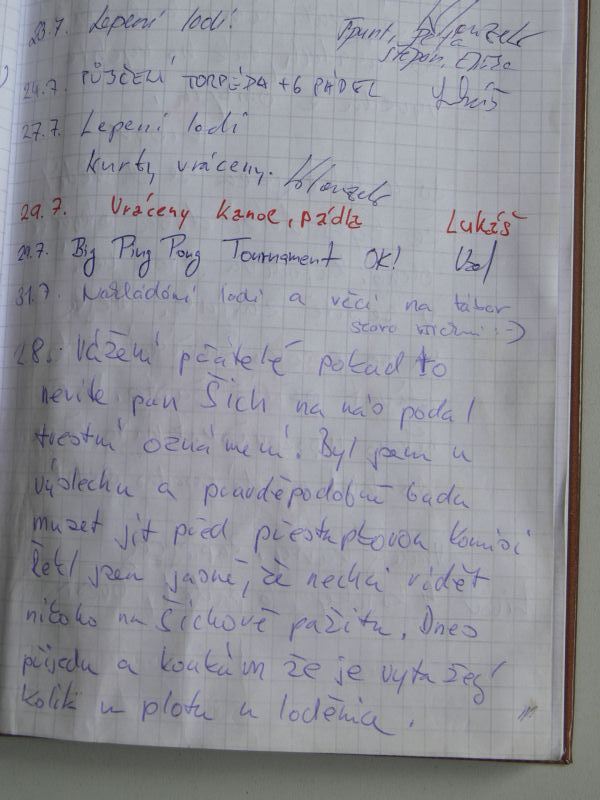 23.7. Lepení lodí.
Štěpán, Eliška
24.7. PŮJČENÍ TORPÉDA + 6 PÁDEL
27.7. Lepení lodí
Kurty vráceny.
29.7. Vráceny kanoe, pádla Lukáš
29.7. Big Ping Pong Tournament OK!
31.7. Nakládání lodí a věcí na tábor
skoro všichni :-)
2.8. Vážení přátelé pokud to
nevíte pan Šich na nás podal
trestní oznámení. Byl jsem u
výslechu a pravděpodobně budu
muset jít před přestupkovou komisi
Řekl jsem jasně, že nechci vidět
nikoho na Šichově pažitu. Dnes
přijedu a koukám že je vytažeý
kolík u plotu u loděnice.